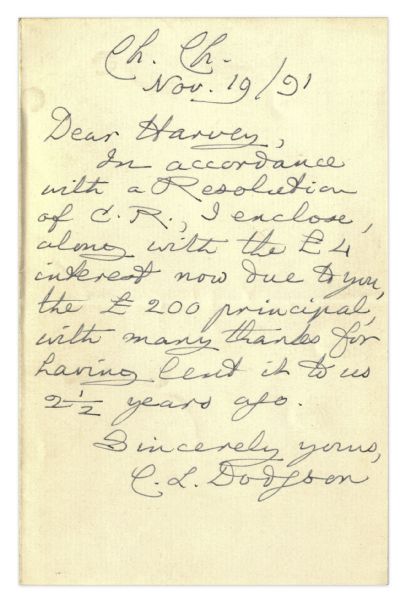 Ch. Ch.
Nov. 19/91
Dear Harvey,
In accordance
with a Resolution
of C.R., I enclose,
along with the £4
interest now due to you,
the £200 principal,
with many thanks for
having lent it to us
2 1/2 years ago.
Sincerely yours,
C. L. Dodgson